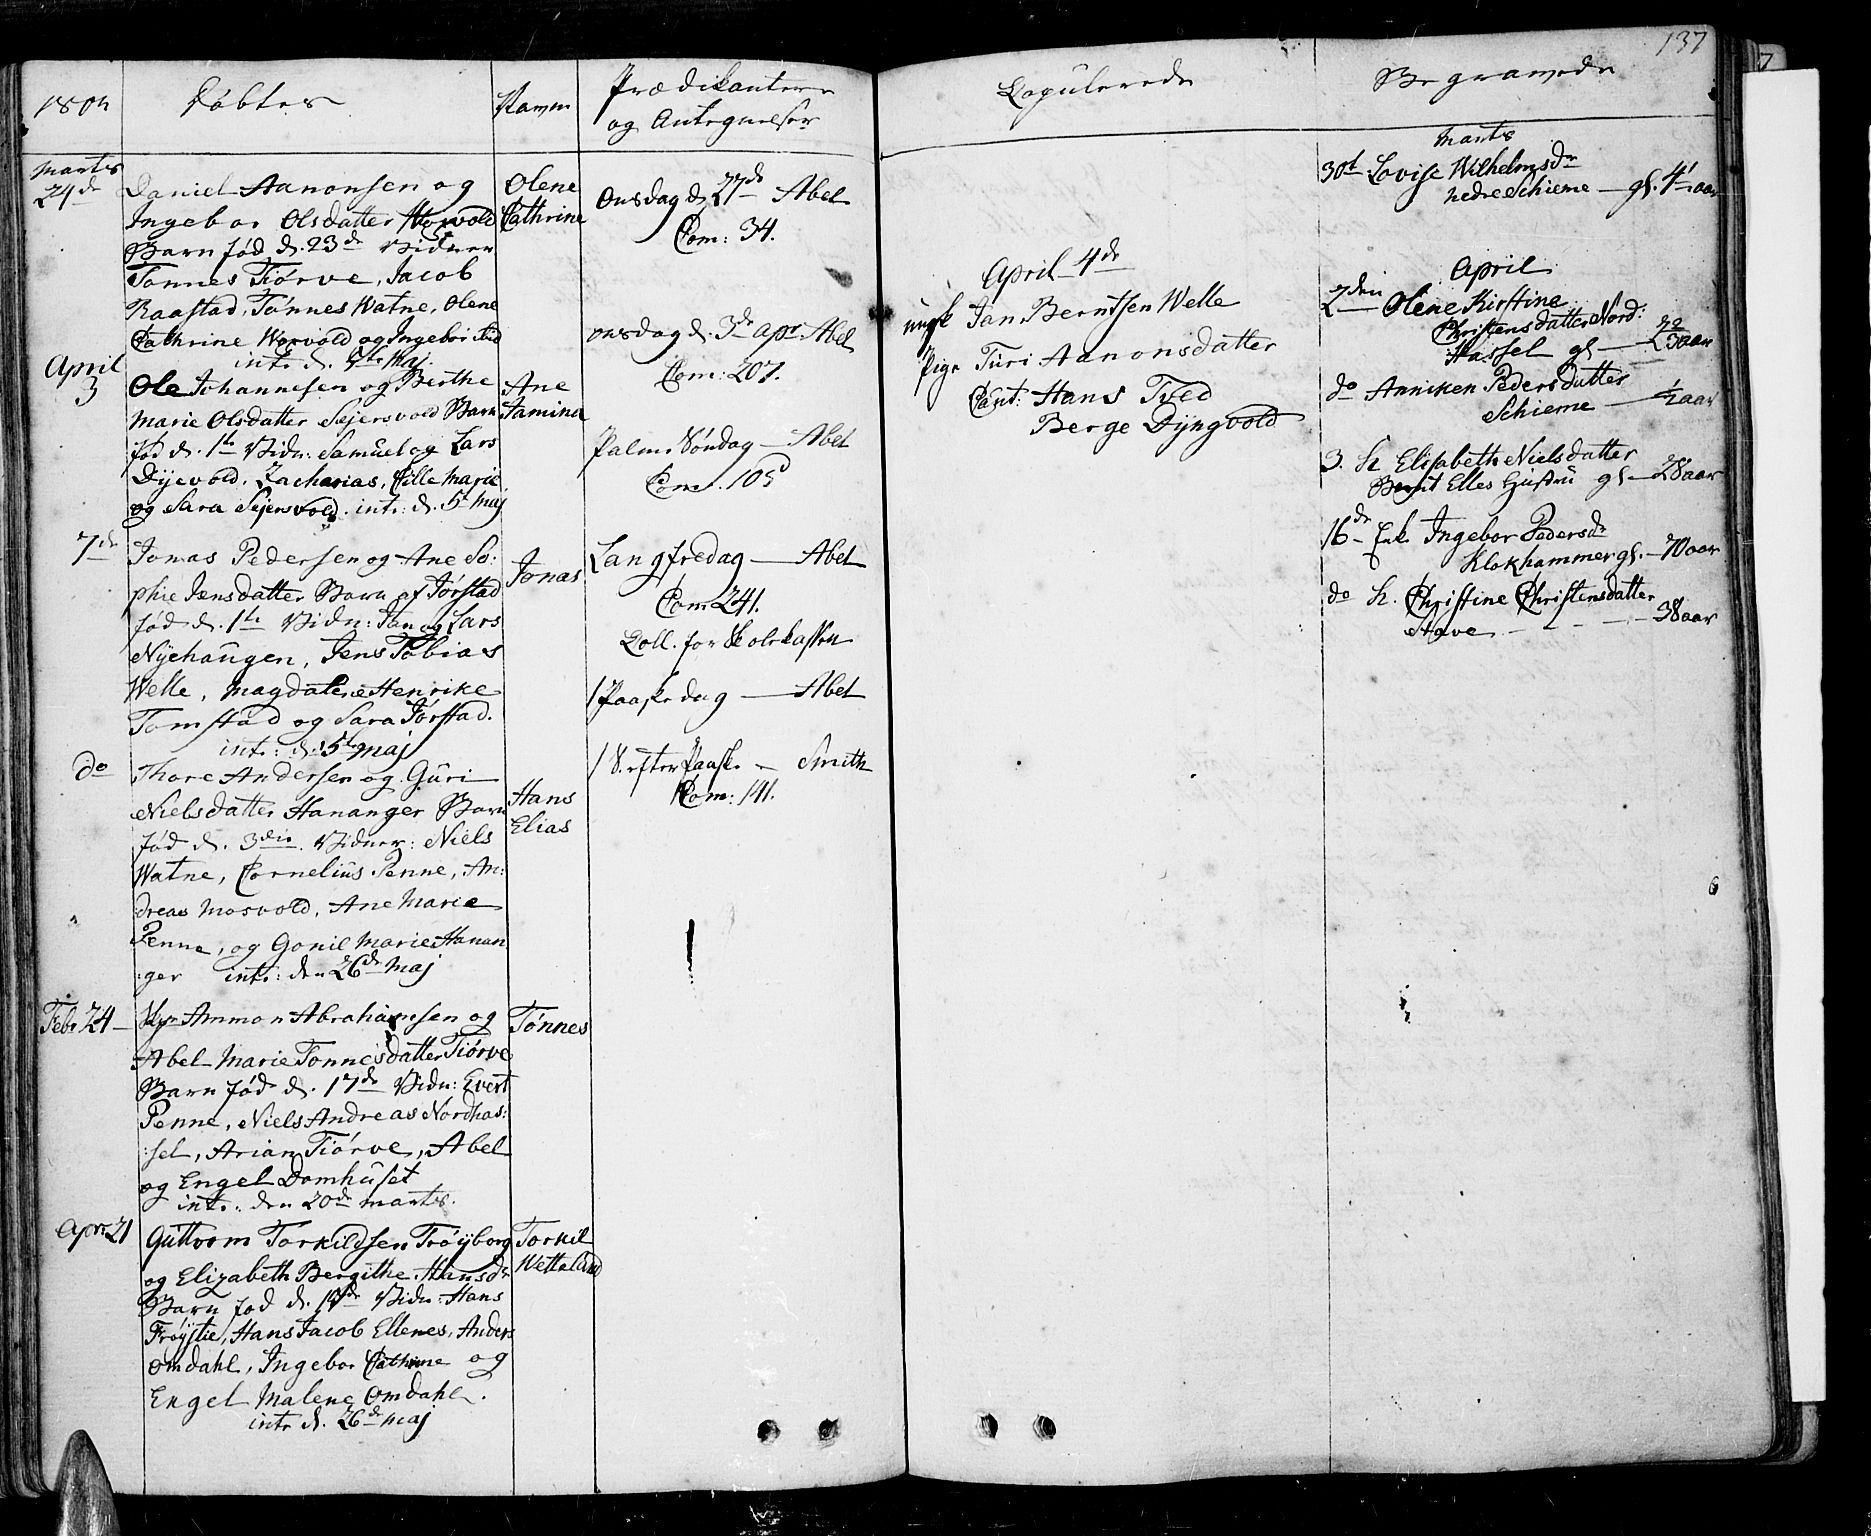 137
Døbte
Navn
Prædikantere
og Antegnelser
Copulerede
Begravede
Marts
24de
Daniel Aanonsen og
Ingebor Olsdatter
Barn fød d. 23de Vidner
Tønnes Tiørve, Jacob
Raastad, Tønnes Watne, Olene
Cathrine Worvold og Ingebor ibid
int: d. Maj
Olene
Cathrine
April
3
Ole Johannesen og Berthe
Marie Olsdatter Sejersvold Barn
fød d. 1te Vidn: Samuel og Lars
Dyevold, Zacharias, Cille Marie
og Sara Sejersvold. int: d. 5t Maj
Ane
Jamina
7de
Jonas Pedersen og Ane So:
phie Jensdatter Barn af Jørstad
fød d. 1te Vidn: Jan og Lars
Nyehaugen, Jens Tobias
Welle, Magdalene Henrike
Tomstad og Sara Jørstad.
int: d. 5te Maj
Jonas
do
Thore Andersen og Guri
Nielsdatter Hananger Barn
fød d. 3die Vidner: Niels
Watne, Cornelius Penne, An:
dreas Mosvold, Ane Marie
Penne, og Gonil Marie Hanan
:ger int: den 26de Maj
Hans
Elias
Febr 24
Ammon Abrahamsen og
Abel Marie Tonnesdatter Tiørve
Barn fød d. 17de Vidn: Evert
Penne, Niels Andreas Nordhas:
:sel, Arian Tiørve, Abel
og Engel Domhuset
int: den 20de Martz.
Tønnes
Apr 21
Guttorm Torkildsen Trøyborg
og Elizabeth Bergithe Hansdr
Barn fød d. Vidn: Hans
Frøytie, Hans Jacob Ellenes, Anders
Omdahl, Ingebor Cathrine og
Engel Malene Omdahl.
int: d. 26de Maj
Torkil
Wetteland
Onsdag d. 27de Abel
Com: 34.
Onsdag d. 3de Apr. Abel
Com: 207.
Palme Søndag — Abel
Com. 105
Langfredag — Abel
Com 241.
Coll. for Skolekassen
1 Paaskedag — Abel
1 S. efter Paaske — Smith
Com: 141.
April 4de
ungk Jan Berntsen Welle
Pige Turi Aanonsdatter
Caut: Hans Tved
Berge Dyngvold
Marts
30te Lovise Wilhelmsdr
nedre Schieme — gl. 4 aar
April
2den Olene Kirstine
Christensdatter Nord:
Hassel gl — aar
do Anniken Pedersdatter
Schieme — 1/2 aar
3. K. Elisabeth Nielsdatter
Bernt Elles Hustru gl — 28 aar
16de Enk. Ingebor Pedersdr
Klokhammer gl. — 70 aar
do K. Christine Christensdatter
Stave — 38 aar